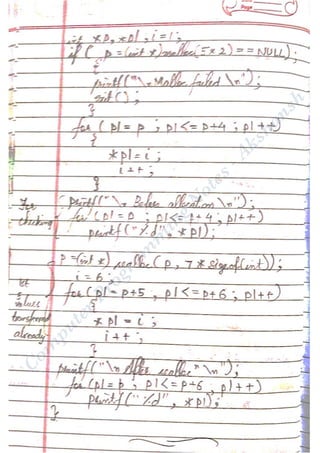 Page
int *p, *pl, i=1;
if ( p =(int *)malloc(5×2) == NULL);
{
printf("\n Malloc failed \n");
exit();
}
for ( pl = p ; pl <= p+4 ; pl++)
{
*pl = i;
i++;
}
For checking
printf("\n Before allocation \n");
for (pl=p ; pl<= p+4 ; pl++)
printf("%d", *pl);
p =(int *) realloc (p, 7 * sizeof(int));
i = 6;
for (pl = p+5 , pl <= p+6 ; pl++)
{
values transferred already
*pl = i;
i++;
}
printf("\n After realloc \n");
for (pl = p ; pl <= p+6 , pl++)
printf("%d", *pl);
}
Notes Akshansh